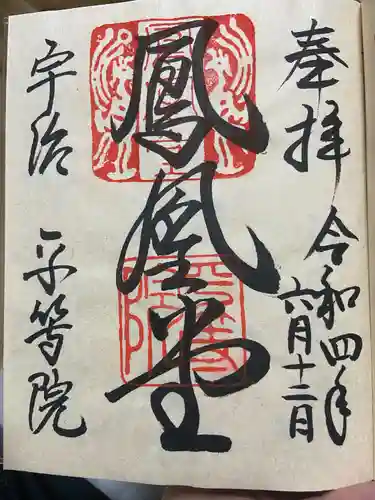 奉拝
令和四年
六月十二日
鳳凰堂
宇治 平等院
平等院